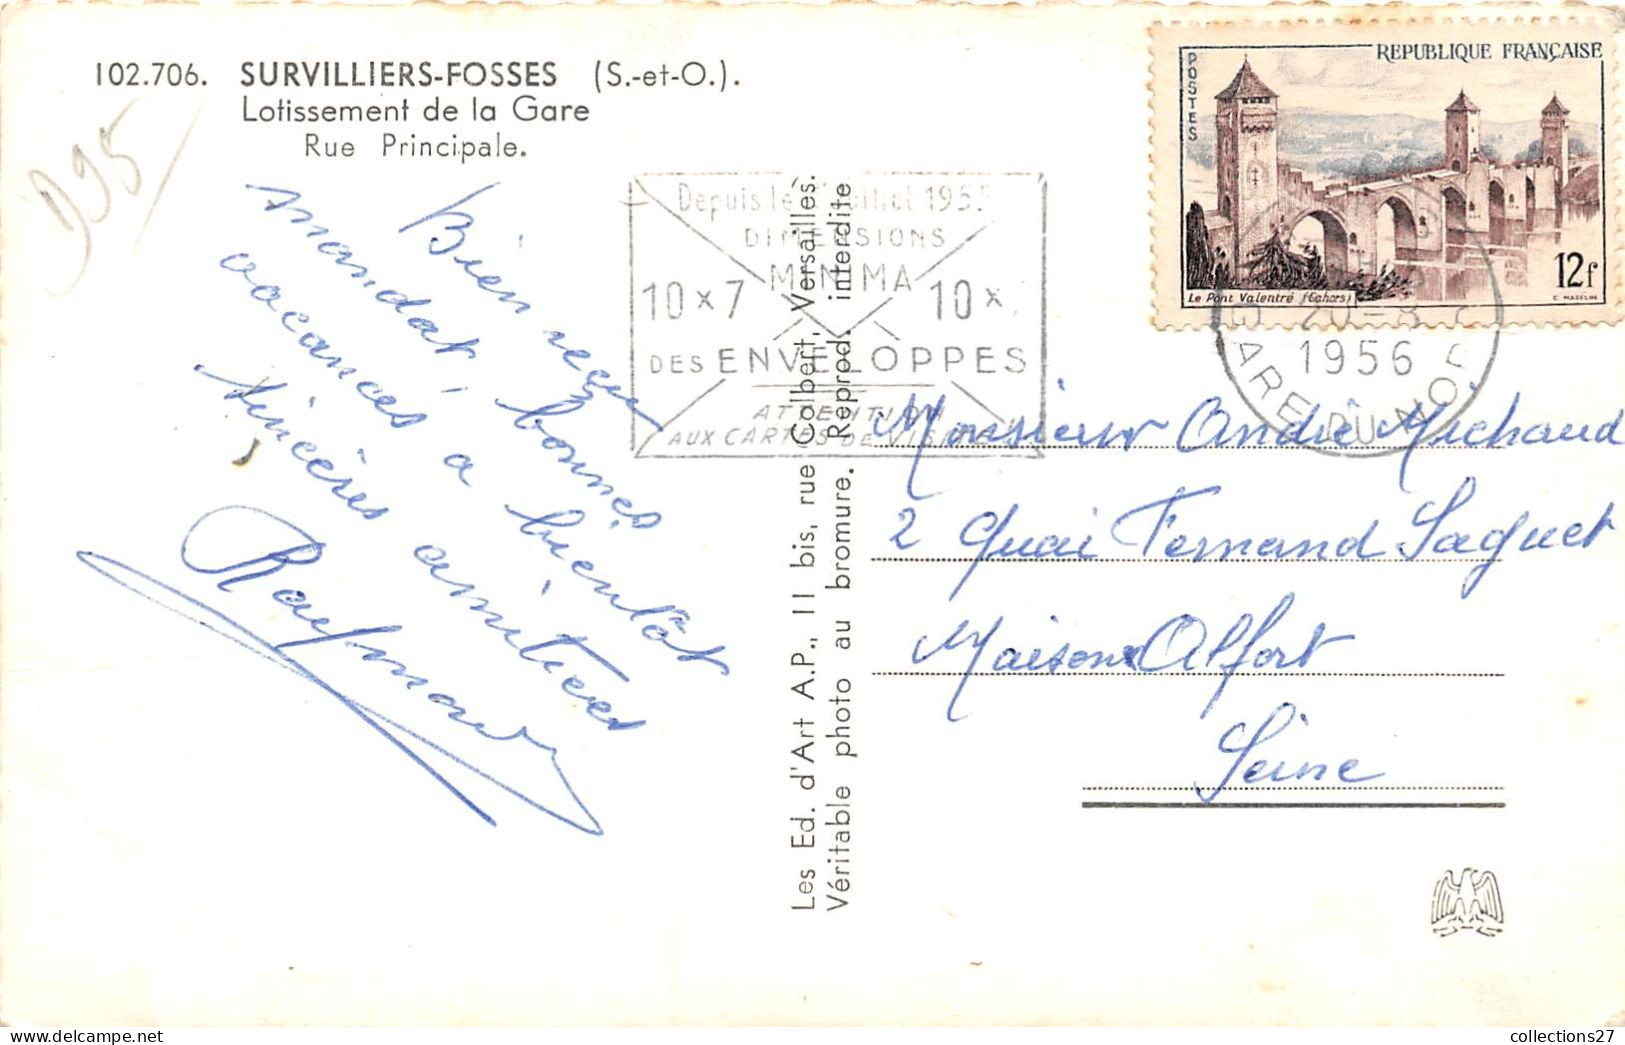 102.706. SURVILLIERS-FOSSES (S.-et-O.).
Lotissement de la Gare
Rue Principale.
D95
Bien reçu
mandat, bonnes
vacances a bientôt
Sincères amitiées
Raymond
Depuis le juillet 1955
DIMENSIONS
MINIMA
10 x 7 10 x
DES ENVELOPPES
ATTENTION
AUX CARTES DE VISITE
Les Ed. d'Art A.P., 11 bis, rue Colbert, Versailles.
Véritable photo au bromure. Reprod. interdite
REPUBLIQUE FRANÇAISE
POSTES
12f
Le Pont Valentré (Cahors)
C. MAZELIN
20-8
1956
GARE DU NORD
Monsieur André Michaud
2 Quai Fernand Saguet
Maisons Alfort
Seine
collections27